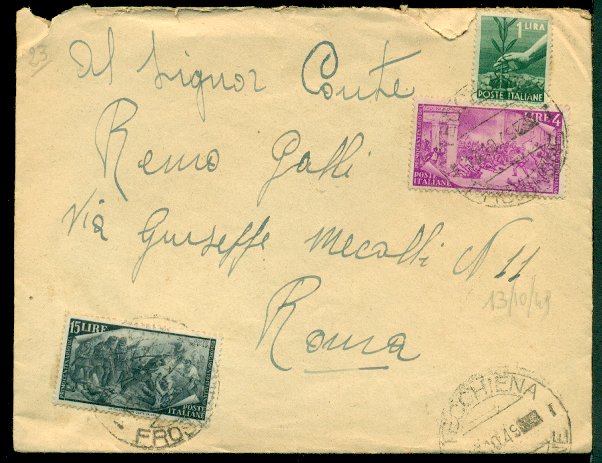 23
1 LIRA
POSTE ITALIANE
Al Signor Conte
LIRE 4
POSTE ITALIANE
Remo Galli
Via Giuseppe Mecalli N 11
13/10/49
Roma
15 LIRE
POSTE ITALIANE
FROS
TECCHIENA
10.49